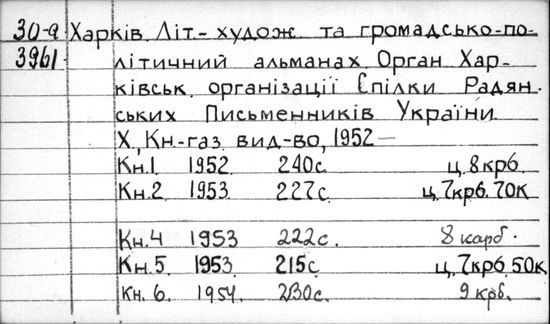 30-а Харків. Літ.-худож. та громадсько-по-
3961 літичний альманах. Орган Хар-
ківськ. організації Спілки Радян.
ських Письменників України.
Х., Кн.-газ. вид-во, 1952—
Кн.1. 1952. 240с. ц. 8крб.
Кн.2. 1953. 227с. ц. 7крб. 70к
Кн.4 1953 222с. 8 карб.
Кн.5. 1953. 215с. ц. 7крб. 50к.
Кн. 6. 1954. 230с. 9 крб.